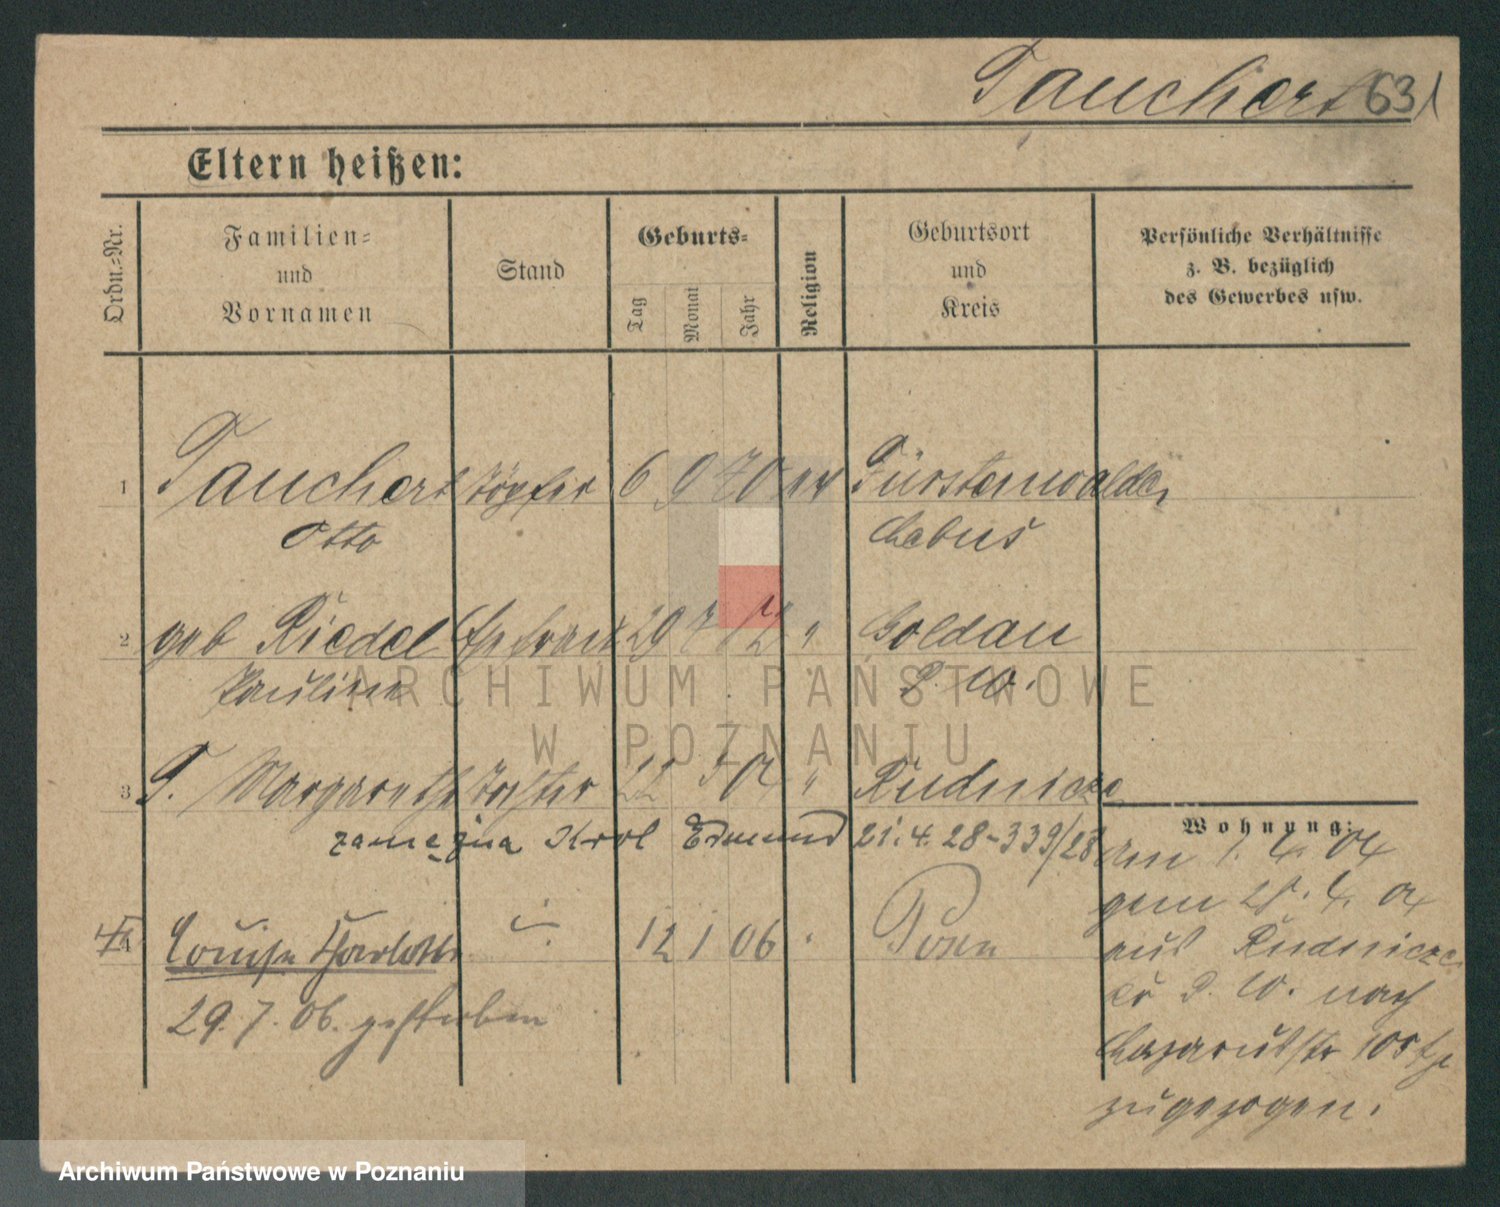 Tauchert 631
Eltern heißen:
Ordn.-Nr.
Familien-
und
Vornamen
Stand
Geburts-
Tag
Monat
Jahr
Religion
Geburtsort
und
Kreis
Persönliche Verhältnisse
z. B. bezüglich
des Gewerbes usw.
1 Tauchert Töpfer 6 9 70 ev Fürstenwalde,
Otto Lebus
2 geb Riedel Ehefrau 29 7 72 " Goldau
Pauline P. W.
3 T. Margarethe Tochter 22 " Rudnicze
zamężna Krol Edmund 21.4.28-339/28
Wohnung:
am 1. 4. 04
gem 28. 4. 04
4 Louise Charlotte 12 1 06 Posen
aus Rudnicze
29. 7. 06. gestorben
P. W. nach
Lazarusstr 10
zugezogen.
ARCHIWUM PAŃSTWOWE
W POZNANIU
Archiwum Państwowe w Poznaniu